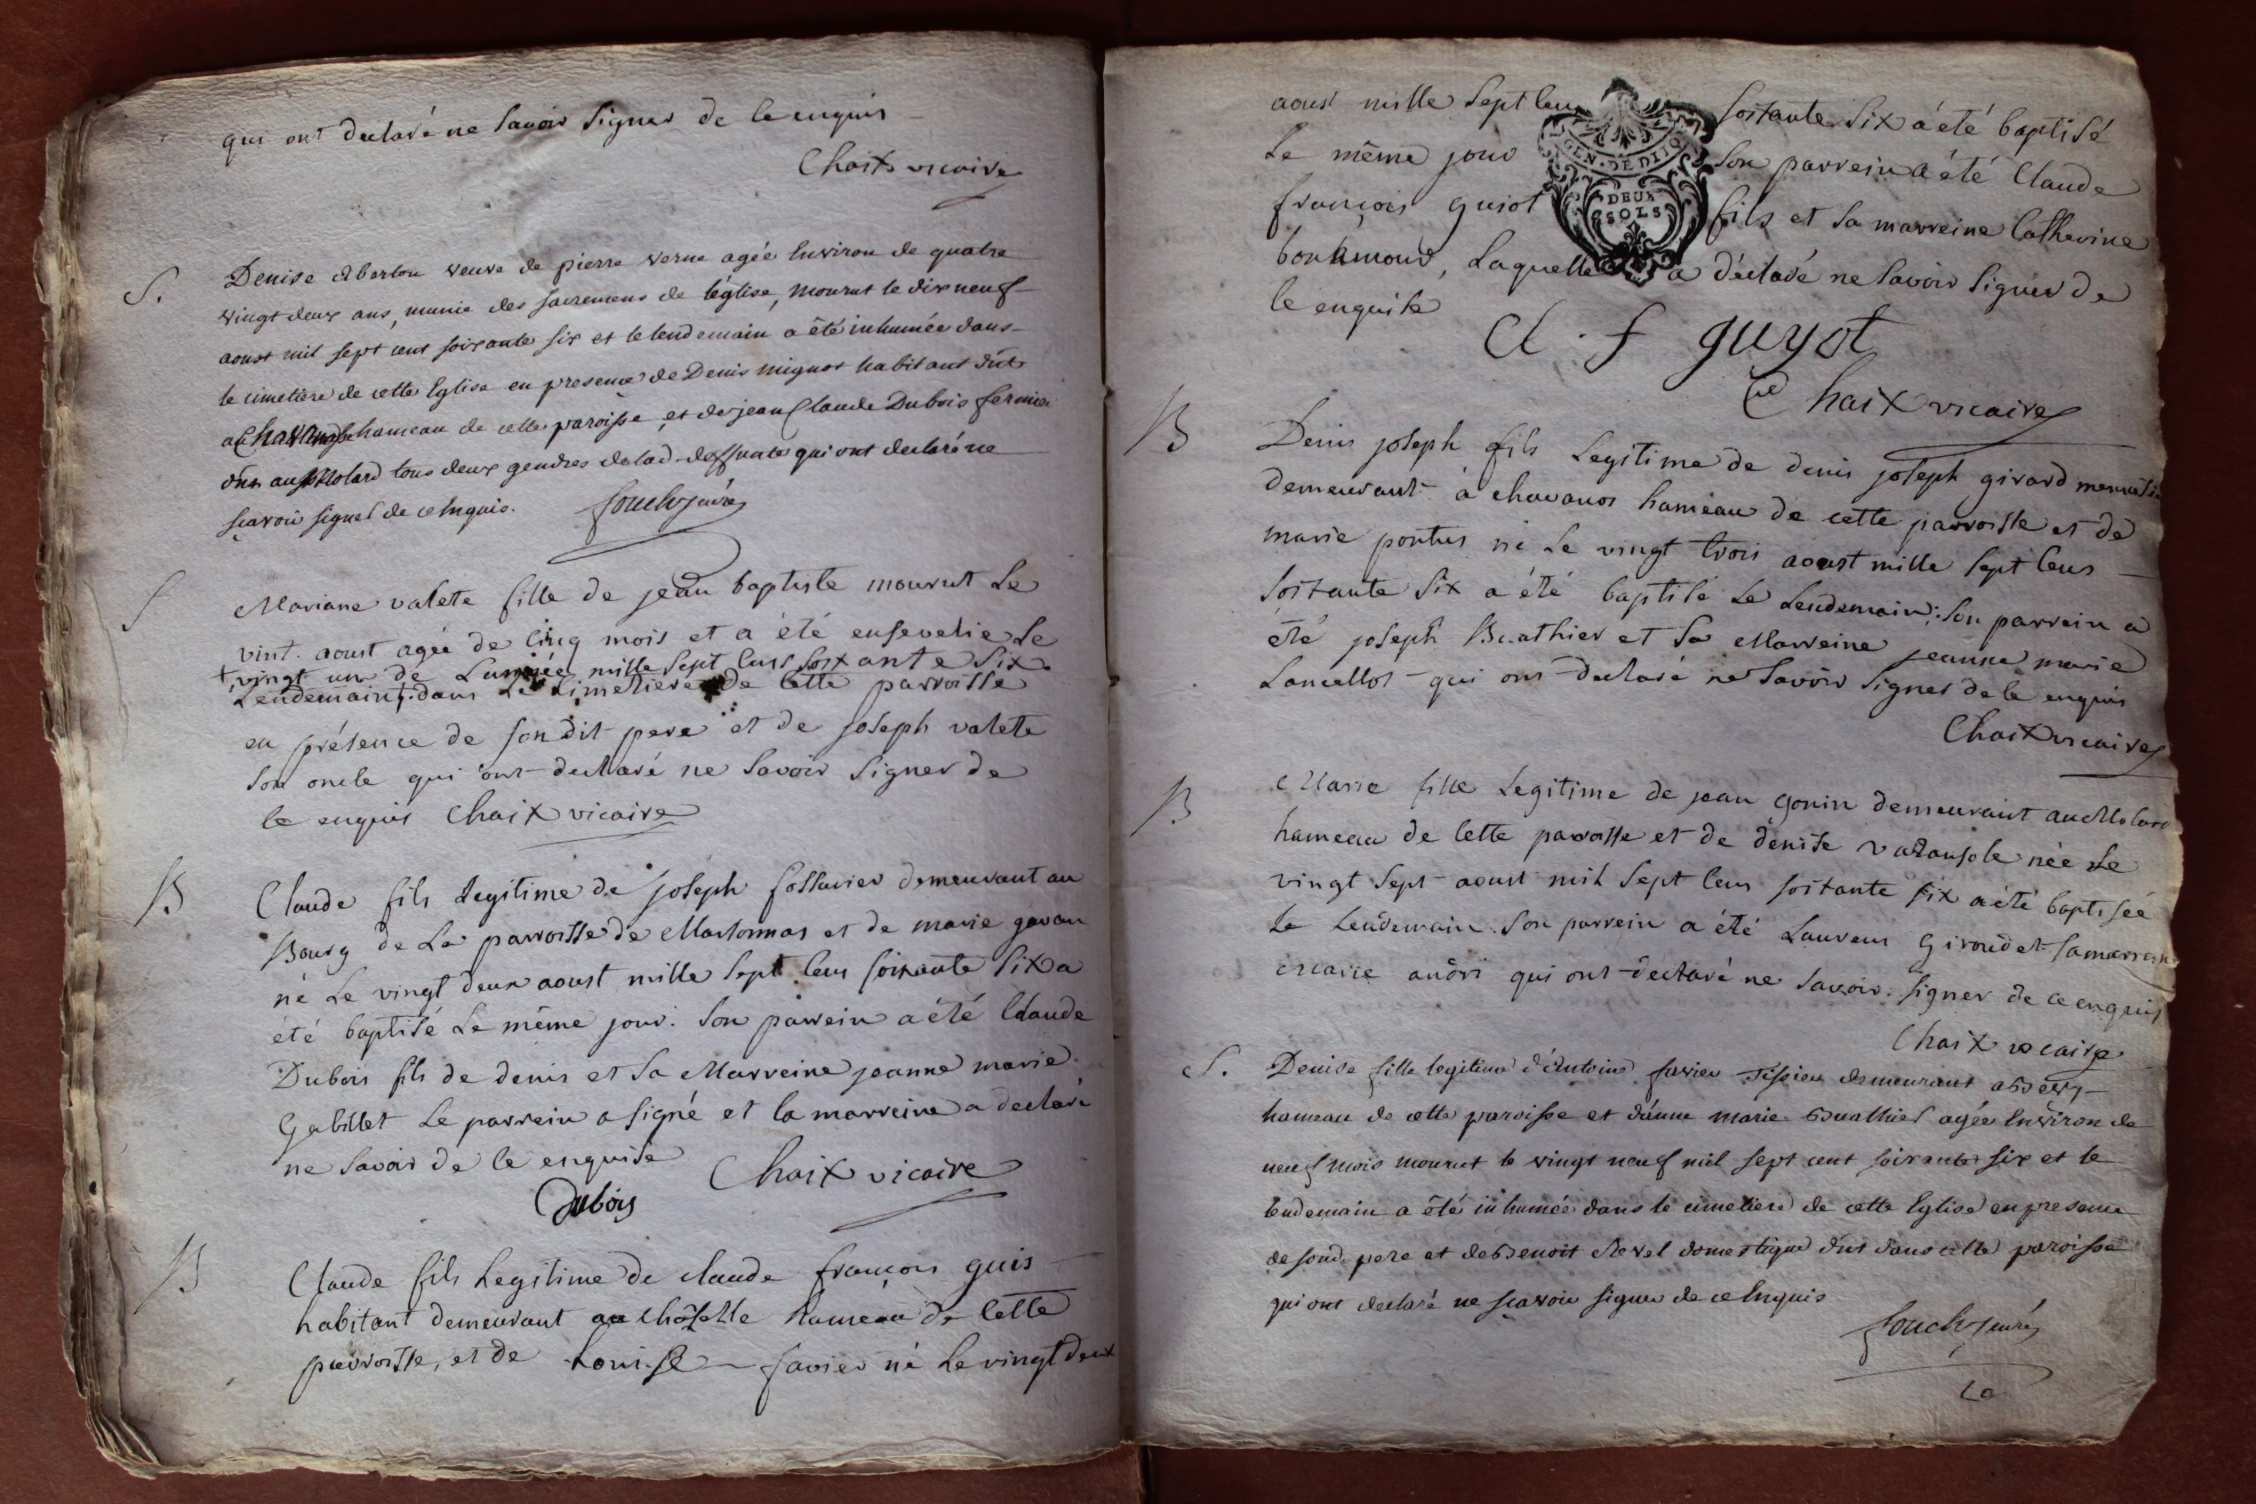 qui ont declaré ne Savoir Signer de ce enquis
Chaix vicaire
S. Denise veuve de pierre verne agée Environ de quatre
vingt deux ans, munie des sacremens de l'église, mourut le dix neuf
aoust mil sept cent soixante six et le lendemain a été inhumée dans
le cimetiere de cette Eglise en presence de Denis mignot habitant
hameau de cette paroisse, et de jean Claude Dubois fermier
tous deux gendres de lad. deffunte qui ont declaré ne
sçavoir signer de ce Enquis.
S Mariane valete fille de jean baptiste mourut Le
vint aoust agée de Cinq mois et a été ensevelie Le
+ vingt un de L'année mille Sept Cens Soixante Six
Lendemain + dans Le Cimetiere de Cette parroisse
en présence de son dit pere et de joseph valete
Son oncle qui ont declaré ne Savoir Signer de
Ce enquis Chaix vicaire
B Claude fils Legitime de joseph demeurant au
Bourg de La parroisse de Marsonnas et de marie
né Le vingt deux aoust mille Sept Cens soixante Six a
été baptisé Le même jour. Son parrein a été Claude
Dubois fils de denis et Sa Marreine jeanne marie
Gabillet Le parrein a Signé et la marreine a declaré
ne Savoir de Ce enquise
Chaix vicaire
Dubois
B Claude fils Legitime de claude françois
habitant demeurant hameau de Cette
parroisse, et de Louise favier né Le vingt deux
aoust mille Sept Cens Soixante Six a été baptisé
Le même jour Son parrein a été Claude
françois guiot fils et Sa marreine Catherine
Laquelle a déclaré ne Savoir Signer de
Ce enquise
GEN. DE DIJON
DEUX
SOLS
Cl. f guyot
Chaix vicaire
B Denis joseph fils Legitime de denis joseph girard
demeurant à chavanos hameau de cette parroisse et de
marie né Le vingt trois aoust mille Sept Cens
Soixante Six a été baptisé Le Lendemain; Son parrein a
été joseph Buathier et Sa Marreine jeanne marie
Lancellot qui ont declaré ne Savoir Signer de Ce enquis
Chaix vicaire
B Marie fille Legitime de jean gonin demeurant au Molard
hameau de Cette parroisse et de denise née Le
vingt Sept aoust mil Sept Cens soixante six a été baptisée
Le Lendemain. Son parrein a été Laurens Giroudet Sa marreine
marie qui ont declaré ne Savoir Signer de ce enquis
Chaix vicaire
S. Denise fille legitime d'Antoine favier demeurant
hameau de cette paroisse et d'anne marie Buathier agée Environ de
neuf mois mourut le vingt neuf mil sept cent soixante six et le
lendemain a été inhumée dans le cimetiere de cette Eglise en presence
de sond. pere et de Benoit domestique dans cette paroisse
qui ont declaré ne sçavoir signer de ce Enquis